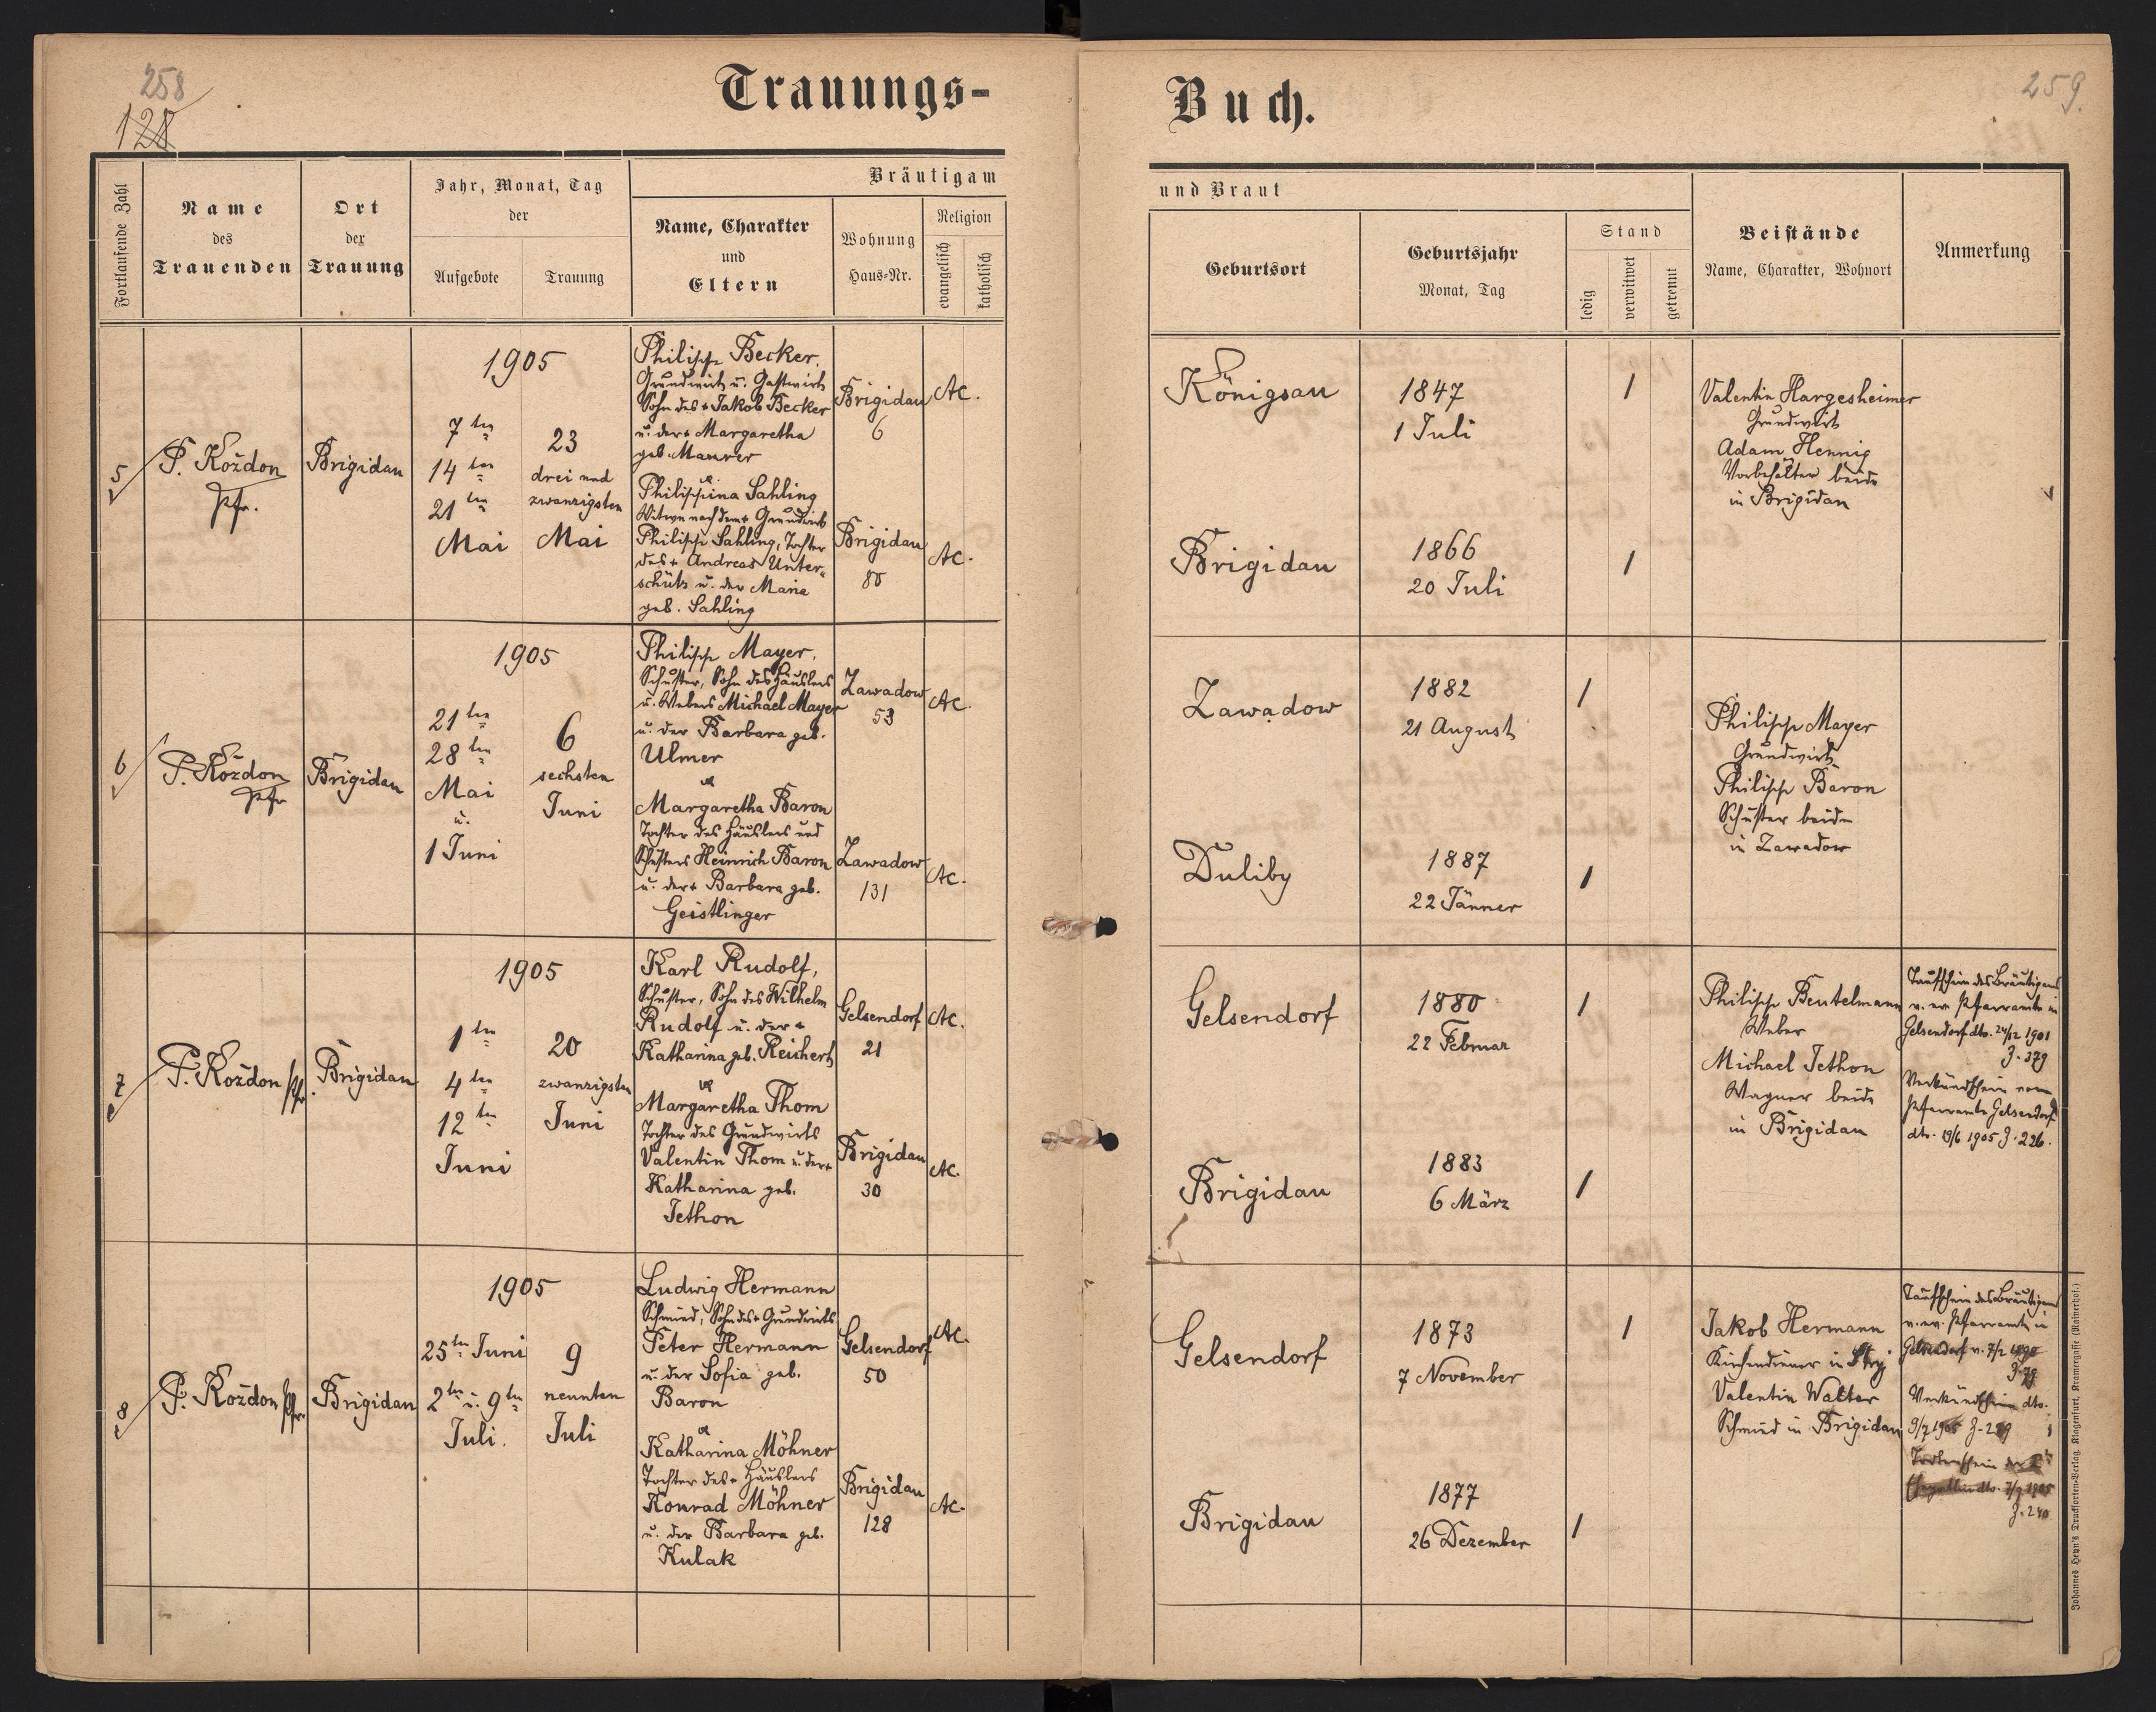 258
128
Trauungs-
Fortlaufende Zahl
Name
des
Trauenden
Ort
der
Trauung
Jahr, Monat, Tag
der
Aufgebote
Trauung
Bräutigam
Name, Charakter
und
Eltern
Wohnung
Haus-Nr.
Religion
evangelisch
katholisch
5
P. Koždon
Pfr.
Brigidau
1905
7ten
14ten
21ten
Mai
23
drei und
zwanzigsten
Mai
Philipp Becker,
Grundwirt u. Gastwirt
Sohn des + Jakob Becker
u. der + Margaretha
geb. Maurer
u.
Philippina Sahling
Witwe nach dem + Grundwirt
Philipp Sahling, Tochter
des + Andreas Unter-
schütz u. der Maria
geb. Sahling
Brigidau
6
AC.
Brigidau
80
AC.
6
P. Koždon
Pfr
Brigidau
1905
21ten
28ten
Mai
u.
1 Juni
6
sechsten
Juni
Philipp Mayer,
Schuster, Sohn des Häuslers
u. Webers Michael Mayer
u. der Barbara geb.
Ulmer
u.
Margaretha Baron
Tochter des Häuslers und
Schusters Heinrich Baron
u. der + Barbara geb.
Geistlinger
Zawadow
53
AC.
Zawadow
131
AC.
7
P. Koždon Pfr.
Brigidau
1905
1ten
4ten
12ten
Juni
20
zwanzigsten
Juni
Karl Rudolf,
Schuster, Sohn des Wilhelm
Rudolf u. der +
Katharina geb. Reichert
u.
Margaretha Thom
Tochter des Grundwirts
Valentin Thom u. der +
Katharina geb.
Jethon
Gelsendorf
21
AC.
Brigidau
30
AC.
8
P. Koždon Pfr.
Brigidau
1905
25ten Juni
2ten u. 9ten
Juli.
9
neunten
Juli
Ludwig Hermann
Schmied, Sohn des + Grundwirts
Peter Hermann
u. der Sofia geb.
Baron
u.
Katharina Möhner
Tochter des + Häuslers
Konrad Möhner
u. der Barbara geb.
Kulak
Gelsendorf
50
AC.
Brigidau
128
AC.
Buch.
259.
und Braut
Geburtsort
Geburtsjahr
Monat, Tag
Stand
ledig
verwitwet
getrennt
Beistände
Name, Charakter, Wohnort
Anmerkung
Königsau
1847
1 Juli
1
Valentin Hargesheimer
Grundwirt
Adam Hennig
Vorbehälter beide
in Brigidau
Brigidau
1866
20 Juli
1
Zawadow
1882
21 August
1
Philipp Mayer
Grundwirt
Philipp Baron
Schuster beide
in Zawadow
Duliby
1887
22 Jänner
1
Gelsendorf
1880
22 Februar
1
Philipp Beutelmann
Weber
Michael Jethon
Wagner beide
in Brigidau
Taufschein des Bräutigams
v. ev. Pfarramte in
Gelsendorf dto. 24/12 1901
Z. 379
Verkündschein vom
Pfarramte Gelsendorf
dto. 19/6 1905 Z. 226.
Brigidau
1883
6 März
1
Gelsendorf
1873
7 November
1
Jakob Hermann
in Stryj
Valentin Walter
Schmied in Brigidau
Taufschein des Bräutigams
v. ev. Pfarramte in
Gelsendorf v. 7/2 1890
Z. 79
Verkündschein dto.
9/7 1905 Z. 239
Todtenschein der
dto. 7/7 1905
Z. 240
Brigidau
1877
26 Dezember
1
Johannes Heyn's Drucksorten-Verlag, Klagenfurt, Kramergasse (Rainerhof.)